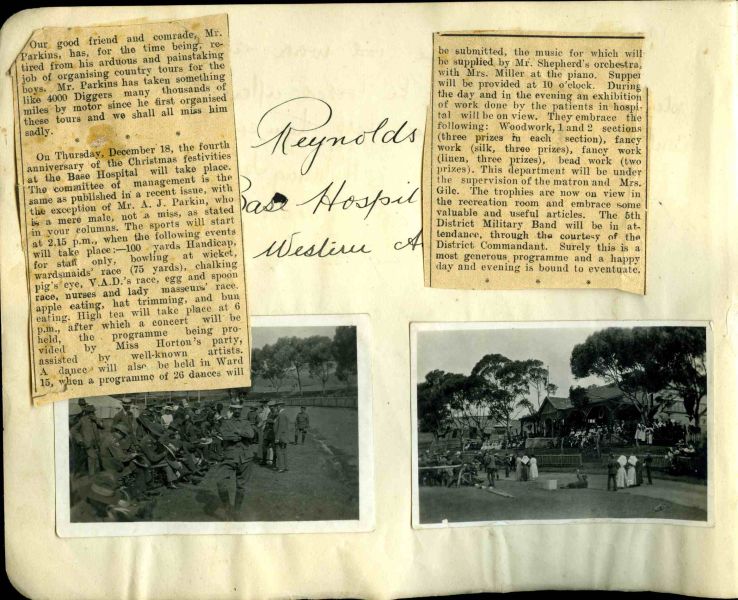 Our good friend and comrade, Mr.
Parkins, has, for the time being, re-
tired from his arduous and painstaking
job of organising country tours for the
boys. Mr. Parkins has taken something
like 4000 Diggers many thousands of
miles by motor since he first organised
these tours and we shall all miss him
sadly.
On Thursday, December 18, the fourth
anniversary of the Christmas festivities
at the Base Hospital will take place.
The committee of management is the
same as published in a recent issue, with
the exception of Mr. A. J. Parkin, who
is a mere male, not a miss, as stated
in your columns. The sports will start
at 2.15 p.m., when the following events
will take place:—100 yards Handicap,
for staff only, bowling at wicket,
wardsmaids' race (75 yards), chalking
pig's eye, V.A.D.'s race, egg and spoon
race, nurses and lady masseurs' race.
apple eating, hat trimming, and bun
eating. High tea will take place at 6
p.m., after which a concert will be
held, the programme being pro-
vided by Miss Horton's party,
assisted by well-known artists.
A dance will also be held in Ward
15, when a programme of 26 dances will
be submitted, the music for which will
be supplied by Mr. Shepherd's orchestra,
with Mrs. Miller at the piano. Supper
will be provided at 10 o'clock. During
the day and in the evening an exhibition
of work done by the patients in hospi-
tal will be on view. They embrace the
following: Woodwork, 1 and 2 sections
(three prizes in each section), fancy
work (silk, three prizes), fancy work
(linen, three prizes), bead work (two
prizes). This department will be under
the supervision of the matron and Mrs.
Gile. The trophies are now on view in
the recreation room and embrace some
valuable and useful articles. The 5th
District Military Band will be in at-
tendance, through the courtesy of the
District Commandant. Surely this is a
most generous programme and a happy
day and evening is bound to eventuate.
Reynolds
Base Hospit
Western A